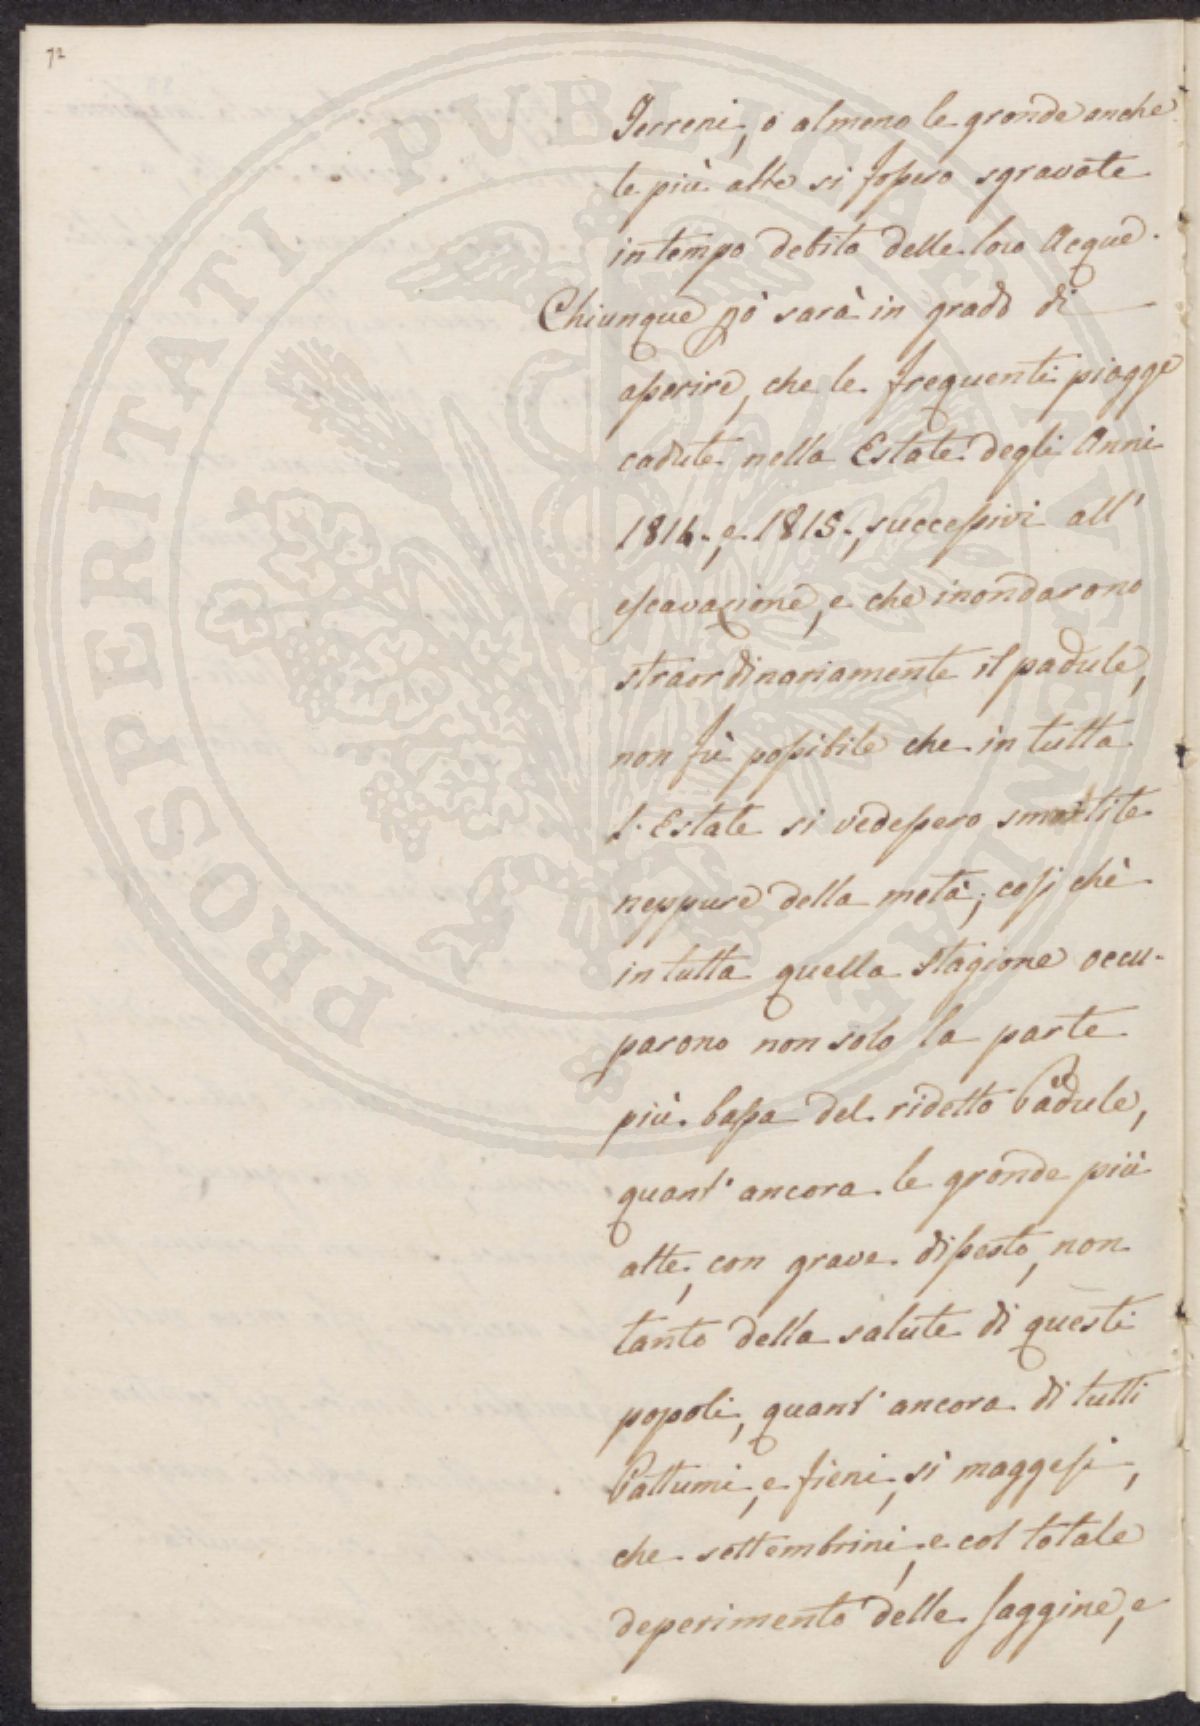 72
Terreni, o almeno le gronde anche
le più alte si fossero sgravate
in tempo debito delle loro Acque.
Chiunque pò sarà in grado di
asserire, che le frequenti piogge
cadute nella Estate degli Anni
1814., e 1815., successivi all'
escavazione, e che inondarono
straordinariamente il padule,
non fù possibile che in tutta
l'Estate si vedessero smaltite
neppure della metà; cosi chè
in tutta quella stagione occu-
parono non solo la parte
più bassa del ridetto Padule,
quant' ancora le gronde più
alte, con grave dissesto, non
tanto della salute di questi
popoli, quant' ancora di tutti
Pattumi, e fieni, si maggesi,
che settembrini, e col totale
deperimento delle saggine, e
PROSPERITATI PUBLICAE AUGENDAE